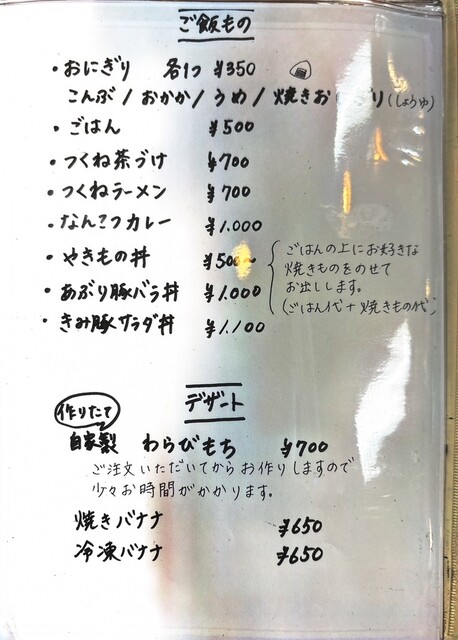 ご飯もの
・おにぎり 各1つ ¥350
こんぶ/おかか/うめ/焼きおにぎり(しょうゆ)
・ごはん ¥500
・つくね茶づけ ¥700
・つくねラーメン ¥700
・なんこつカレー ¥1.000
・やきもの丼 ¥500〜
ごはんの上にお好きな
焼きものをのせて
お出しします。
(ごはん代+焼きもの代)
・あぶり豚バラ丼 ¥1.000
・きみ豚サラダ丼 ¥1.100
デザート
作りたて
自家製 わらびもち ¥700
ご注文いただいてからお作りしますので
少々お時間がかかります。
焼きバナナ ¥650
冷凍バナナ ¥650